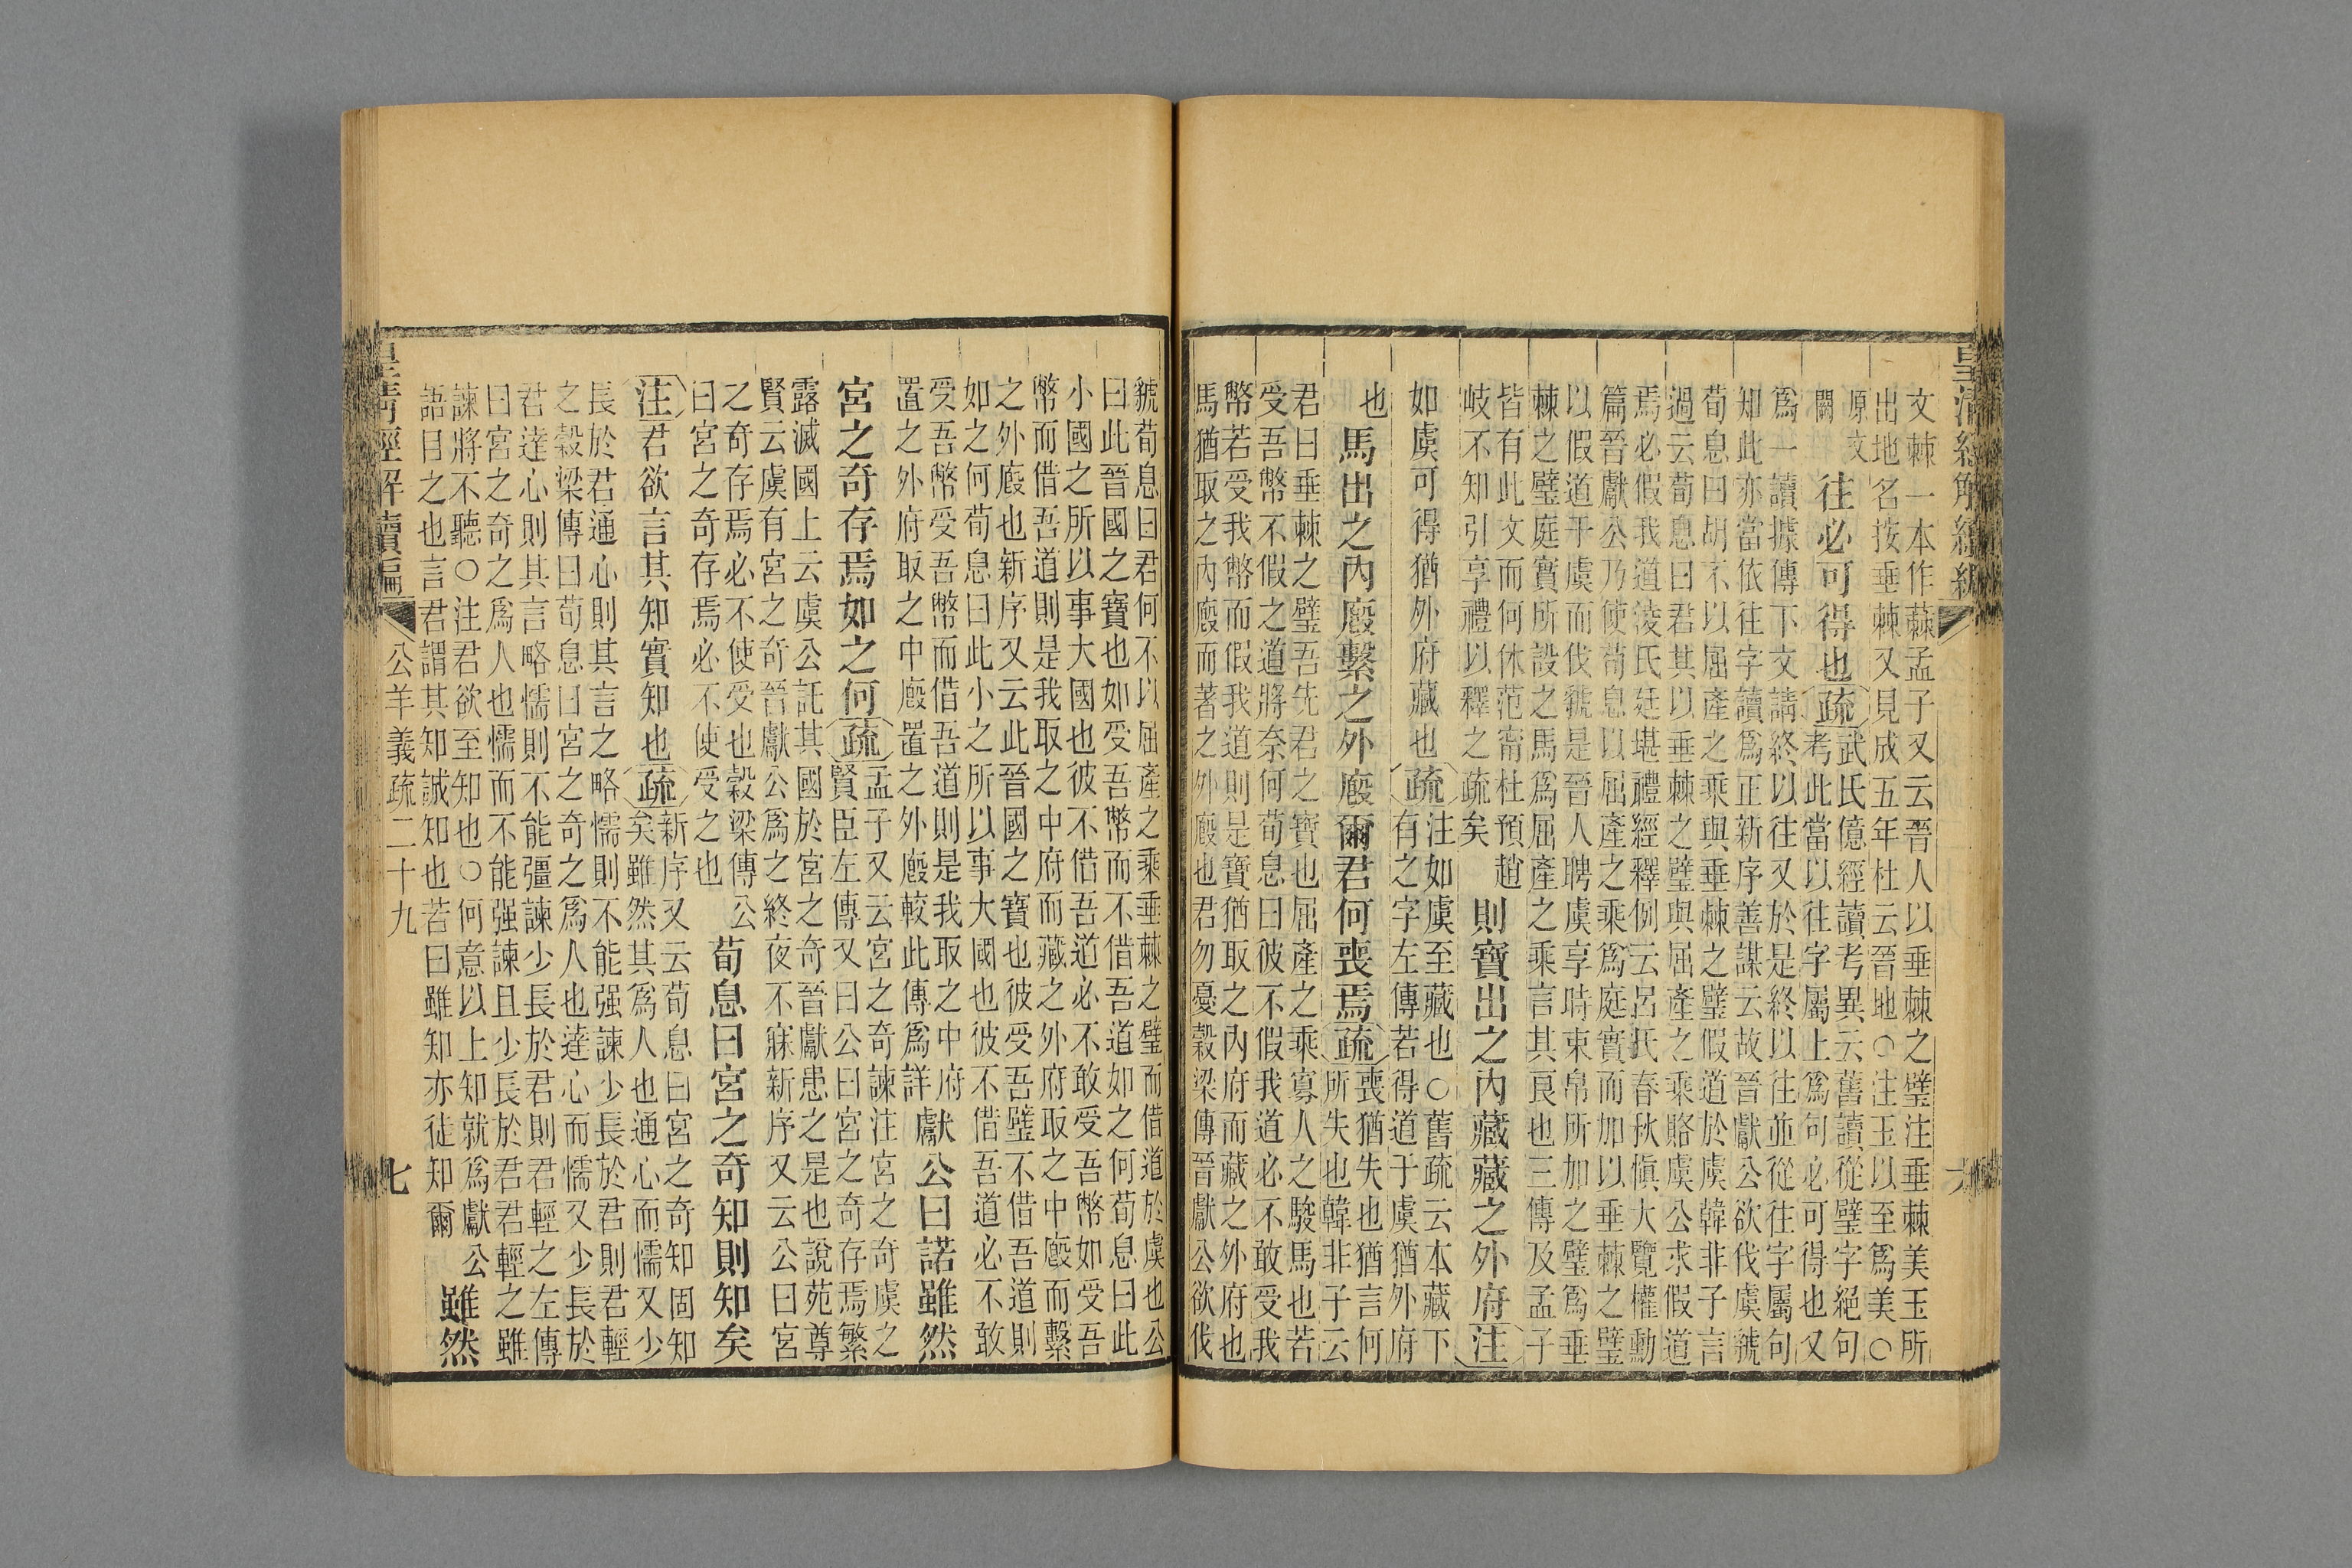 皇清經解續編
六
文棘一本作蕀孟子又云晉人以垂棘之璧注垂棘美玉所
出地名按垂棘又見成五年杜云晉地○注玉以至爲美○
原文
闕
往必可得也疏
武氏億經讀考異云舊讀從璧字絕句
考此當以往字屬上爲句必可得也又
爲一讀據傳下文請終以往又於是終以往並從往字屬句
知此亦當依往字讀爲正新序善謀云故晉獻公欲伐虞虢
荀息曰胡不以屈產之乘與垂棘之璧假道於虞韓非子言
過云荀息曰君其以垂棘之璧與屈產之乘賂虞公求假道
焉必假我道淩氏廷堪禮經釋例云呂氏春秋愼大覽權勳
篇晉獻公乃使荀息以屈產之乘爲庭實而加以垂棘之璧
以假道乎虞而伐虢是晉人聘虞享時束帛所加之璧爲垂
棘之璧庭實所設之馬爲屈產之乘言其良也三傳及孟子
皆有此文而何休范甯杜預趙
岐不知引享禮以釋之疏矣
則寶出之內藏藏之外府注
如虞可得猶外府藏也疏
注如虞至藏也○舊疏云本藏下
有之字左傳若得道于虞猶外府
也
馬出之內廄繫之外廄爾君何喪焉疏
喪猶失也猶言何
所失也韓非子云
君曰垂棘之璧吾先君之寶也屈產之乘寡人之駿馬也若
受吾幣不假之道將奈何荀息曰彼不假我道必不敢受我
幣若受我幣而假我道則是寶猶取之內府而藏之外府也
馬猶取之內廄而著之外廄也君勿憂穀梁傳晉獻公欲伐
虢荀息曰君何不以屈產之乘垂棘之璧而借道於虞也公
曰此晉國之寶也如受吾幣而不借吾道如之何荀息曰此
小國之所以事大國也彼不借吾道必不敢受吾幣如受吾
幣而借吾道則是我取之中府而藏之外府取之中廄而繫
之外廄也新序又云此晉國之寶也彼受吾璧不借吾道則
如之何荀息曰此小之所以事大國也彼不借吾道必不敢
受吾幣受吾幣而借吾道則是我取之中府
置之外府取之中廄置之外廄較此傳爲詳
獻公曰諾雖然
宮之奇存焉如之何疏
孟子又云宮之奇諫注宮之奇虞之
賢臣左傳又曰公曰宮之奇存焉繁
露滅國上云虞公託其國於宮之奇晉獻患之是也說苑尊
賢云虞有宮之奇晉獻公爲之終夜不寐新序又云公曰宮
之奇存焉必不使受也穀梁傳公
曰宮之奇存焉必不使受之也
荀息曰宮之奇知則知矣
注君欲言其知實知也疏
新序又云荀息曰宮之奇知固知
矣雖然其爲人也通心而懦又少
長於君通心則其言之略懦則不能强諫少長於君則君輕
之穀梁傳曰荀息曰宮之奇之爲人也達心而懦又少長於
君達心則其言略懦則不能彊諫少長於君則君輕之左傳
曰宮之奇之爲人也懦而不能强諫且少長於君君輕之雖
諫將不聽○注君欲至知也○何意以上知就爲獻公
語目之也言君謂其知誠知也若曰雖知亦徒知爾
雖然
皇清經解續編
公羊義疏二十九
七